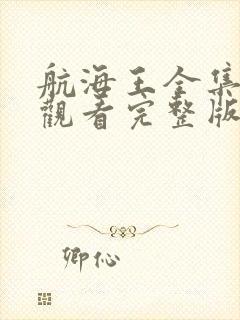 航海王全集
觀看完整版
卿伈